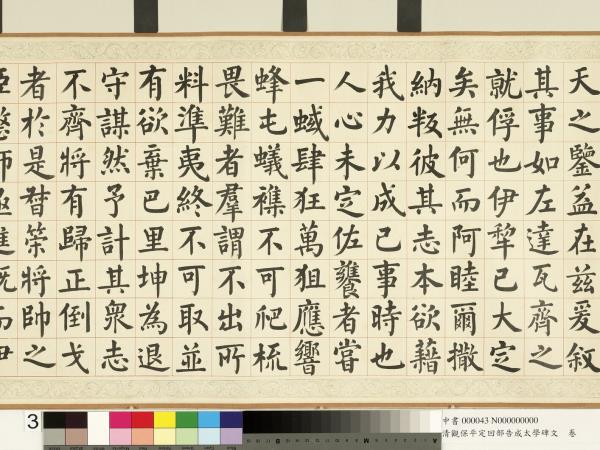 天之鑒益在兹爰叙
其事如左達瓦齊之
就俘也伊犂已大定
矣無何而阿睦爾撒
納叛彼其志本欲藉
我力以成已事時也
人心未定佐饔者嘗
一蜮肆狂萬狙應響
蜂屯蟻襍不可爬梳
畏難者羣謂不出所
料準夷終不可取並
有欲棄巴里坤為退
守謀然予計其衆志
不齊將有歸正倒戈
者於是督策將帥之
3
中書 000043 N000000000
清觀保平定回部告成太學碑文 卷